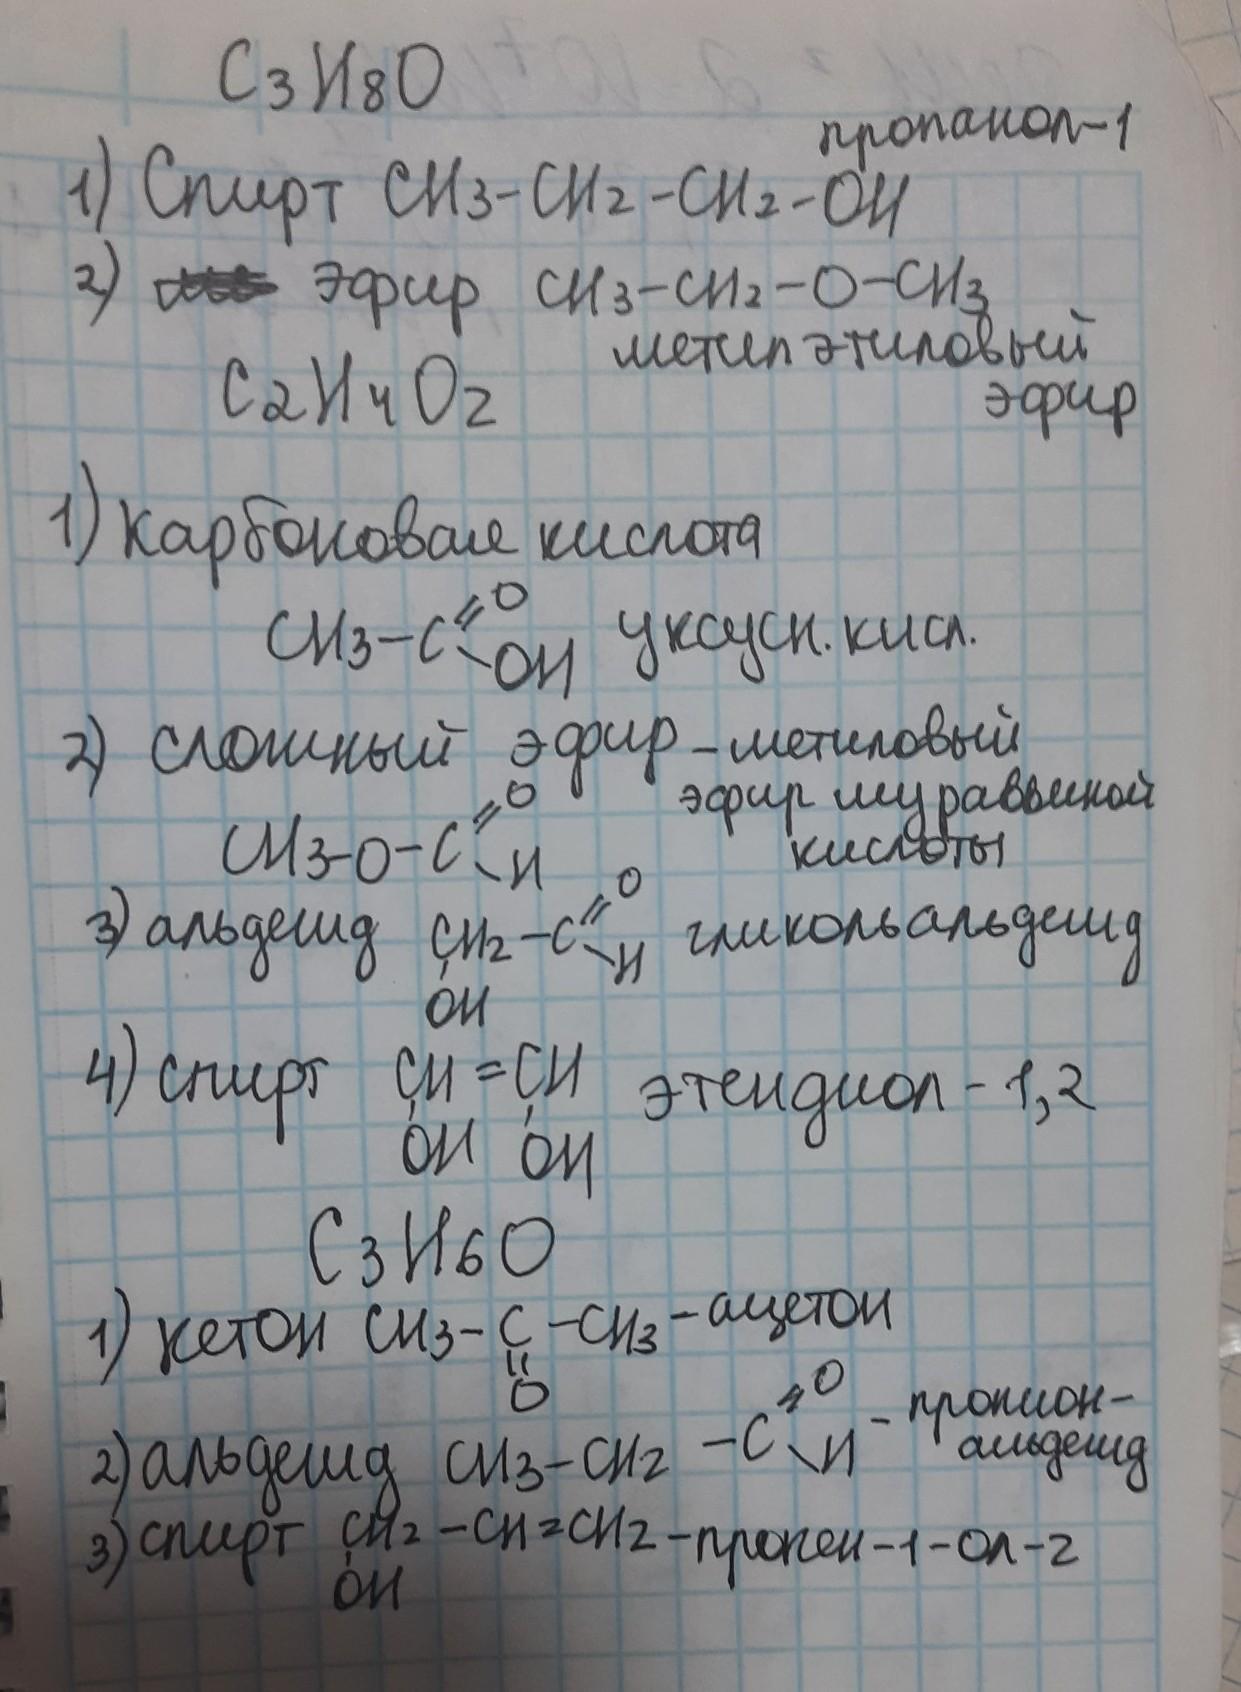 C3H8O
пропанол-1
1) Спирт CH3-CH2-CH2-OH
2) эфир CH3-CH2-O-CH3
метилэтиловый
эфир
C2H4O2
1) карбоновая кислота
O
CH3-C OH уксусн. кисл.
2) сложный эфир - метиловый
эфир муравьиной
кислоты
O
CH3-O-C H
O
3) альдегид CH2-C H гликольальдегид
OH
4) спирт CH=CH этендиол-1,2
OH OH
C3H6O
1) кетон CH3-C-CH3-ацетон
O
O
2) альдегид CH3-CH2-C H - пропион-
альдегид
3) спирт CH2-CH=CH2-пропен-1-ол-2
OH